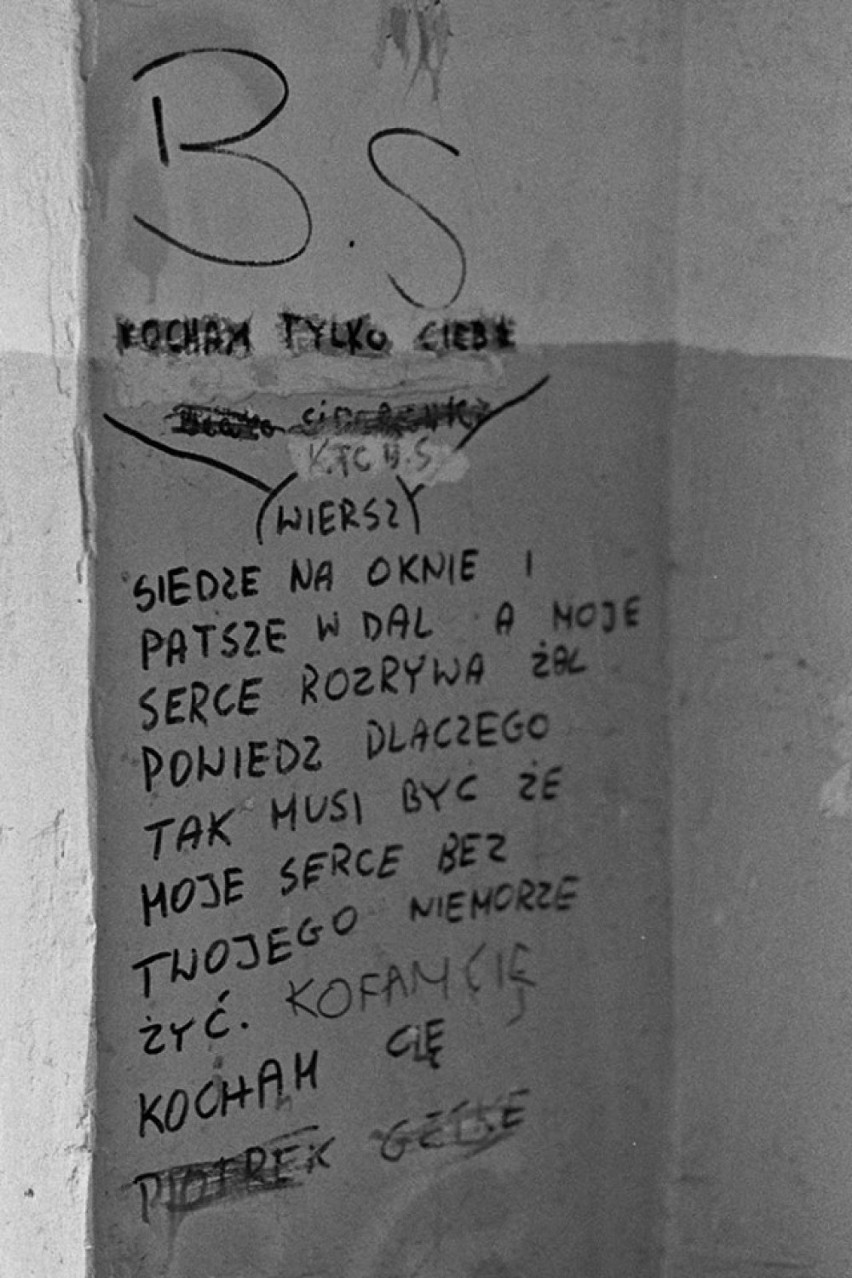 B.S
KOCHAM TYLKO CIEBE
K+C B.S
(WIERSZY
SIEDZE NA OKNIE I
PATSZE W DAL A MOJE
SERCE ROZRYWA ŻAL
PONIEDZ DLACZEGO
TAK MUSI BYĆ ŻE
MOJE SERCE BEZ
TWOJEGO NIEMORZE
ŻYĆ. KOFAM CIĘ
KOCHAM CIĘ
PIOTREK